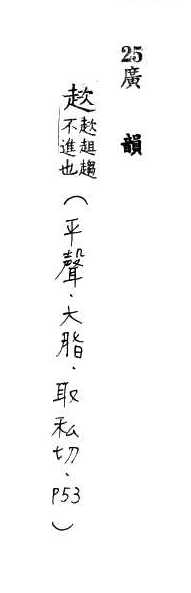 25廣韻
趑趑趄趨不進也(平聲.大脂.取私切.P53)